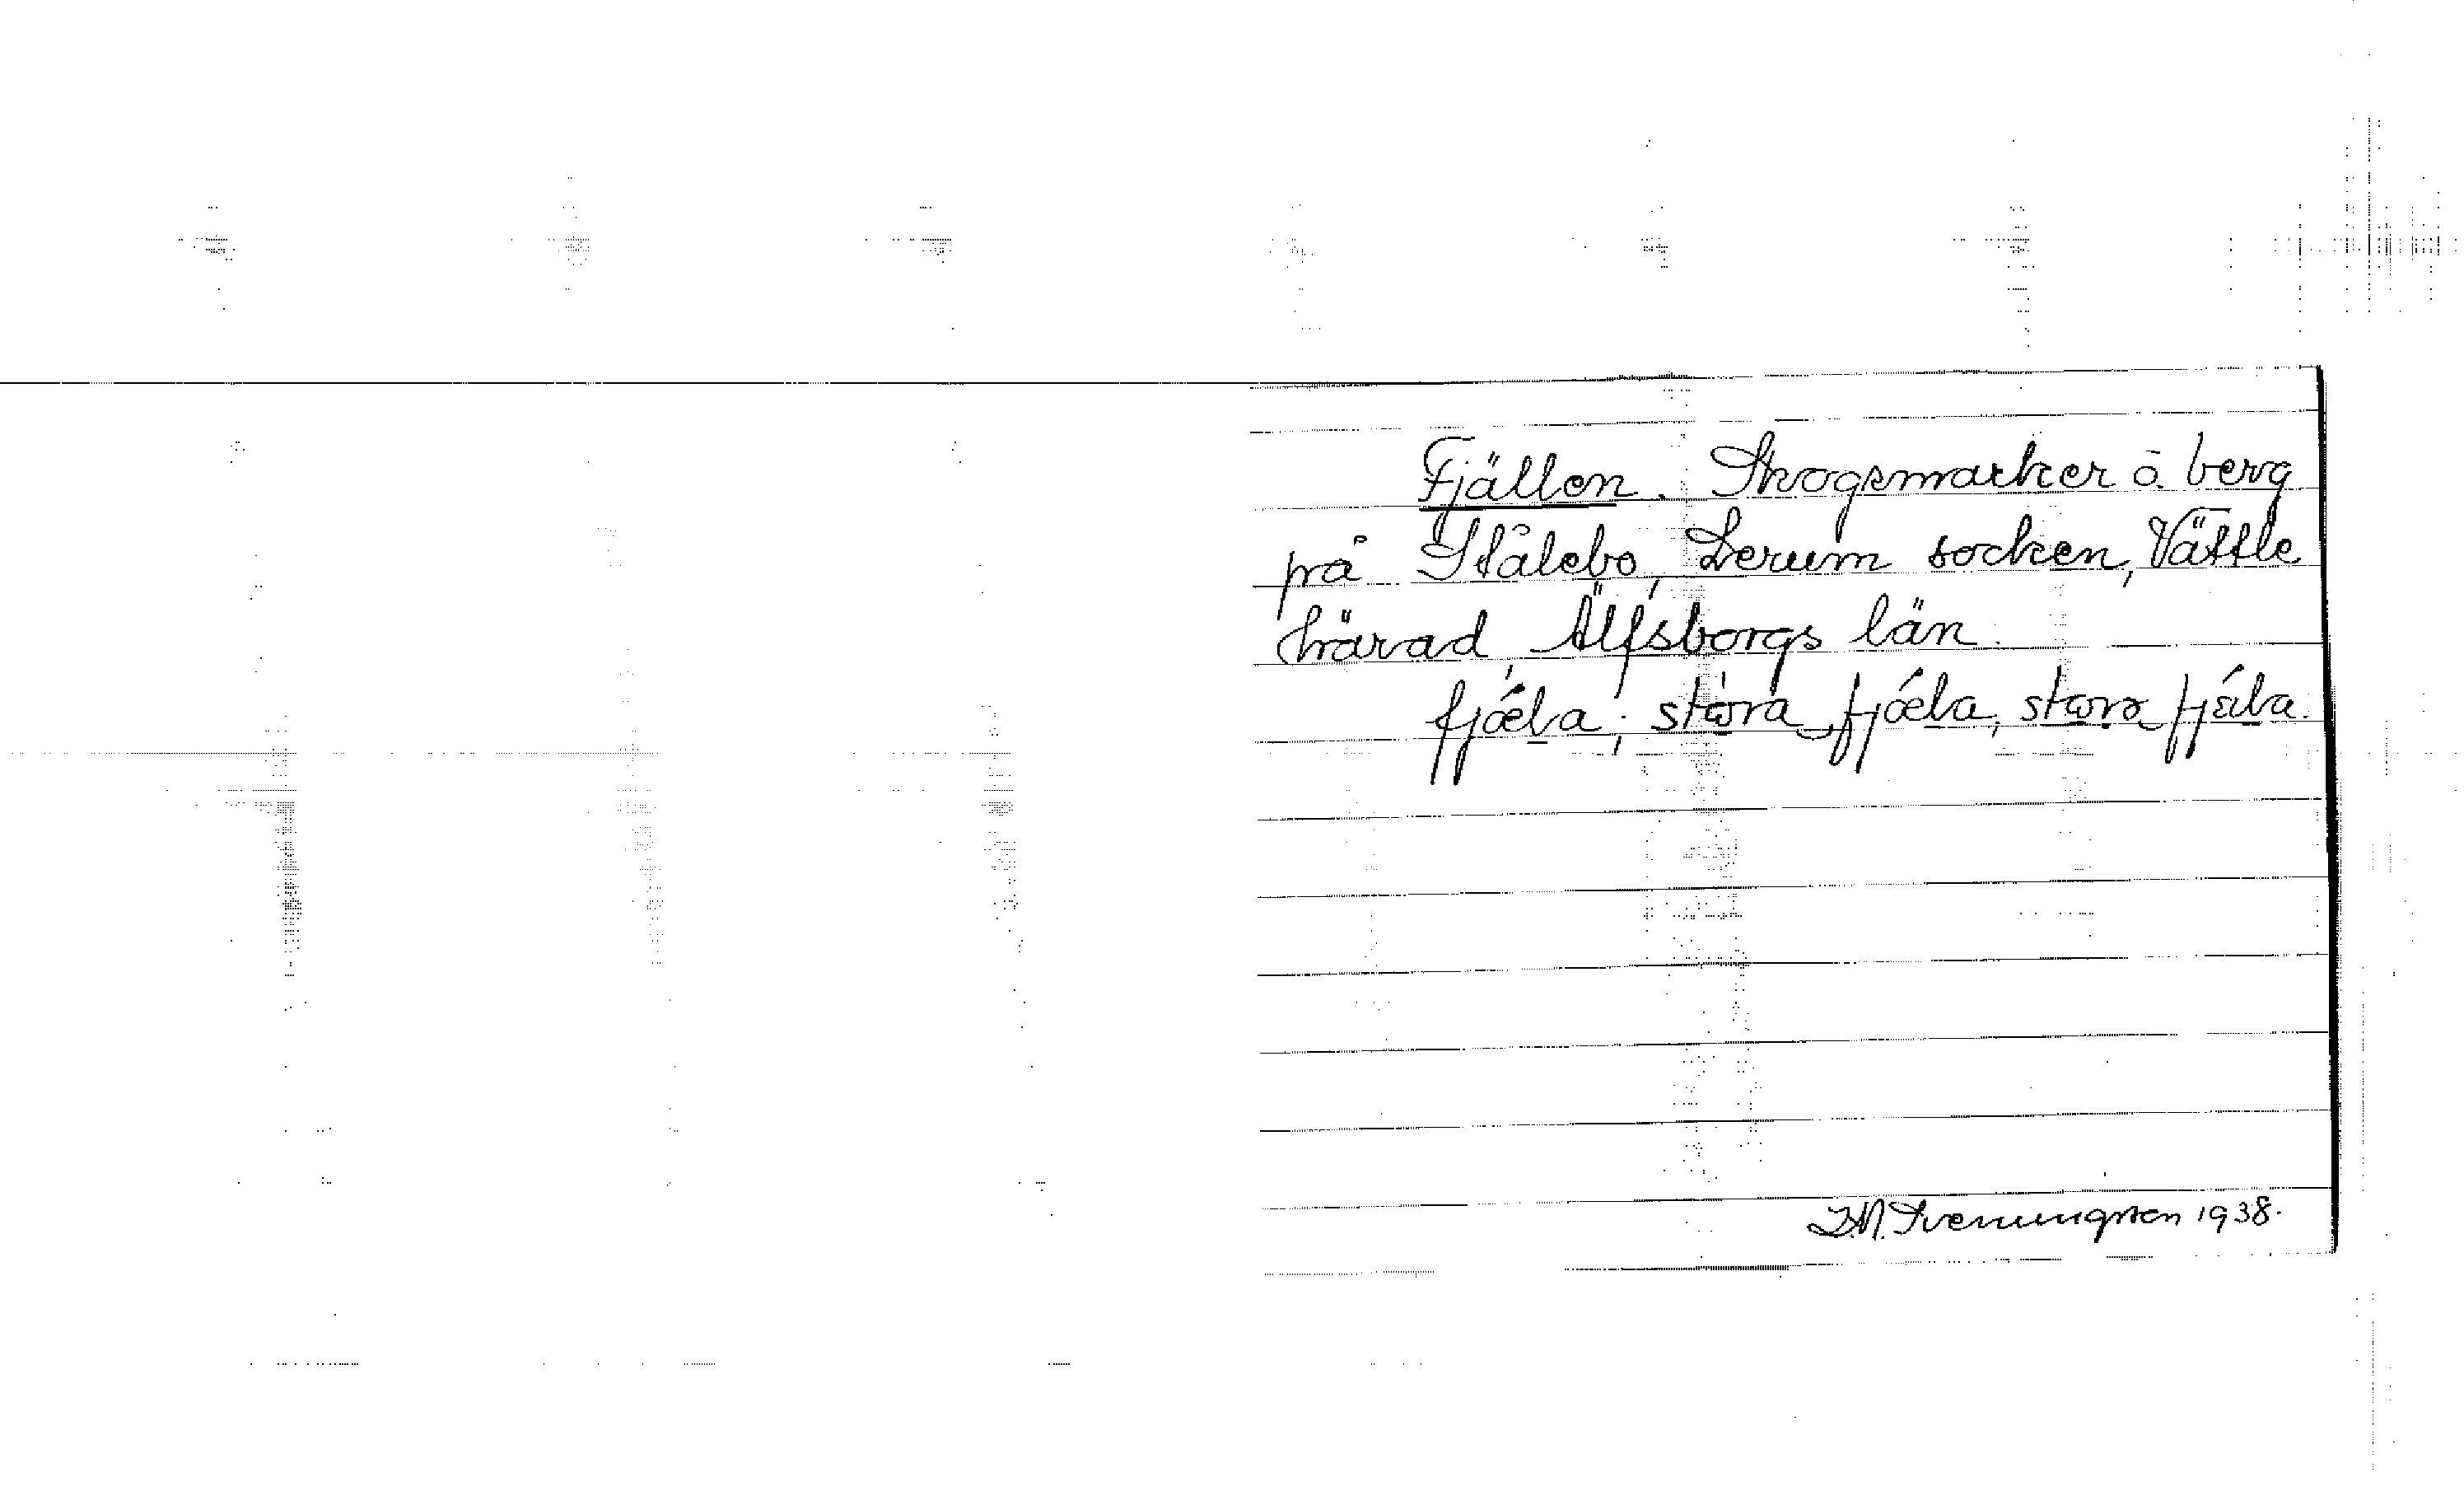 Fjällen. Skogsmarker o. berg
på Stålebo, Lerum socken, Vättle
härad, Älfsborgs län.
fjæla; stora fjæla, stora fjæla.
Sveningsson 1938.